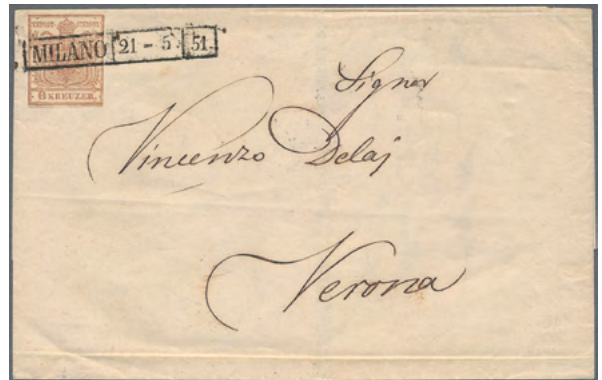 MILANO 21 - 5 51.
6 KREUZER.
Signor
Vincenzo Delaj
Verona